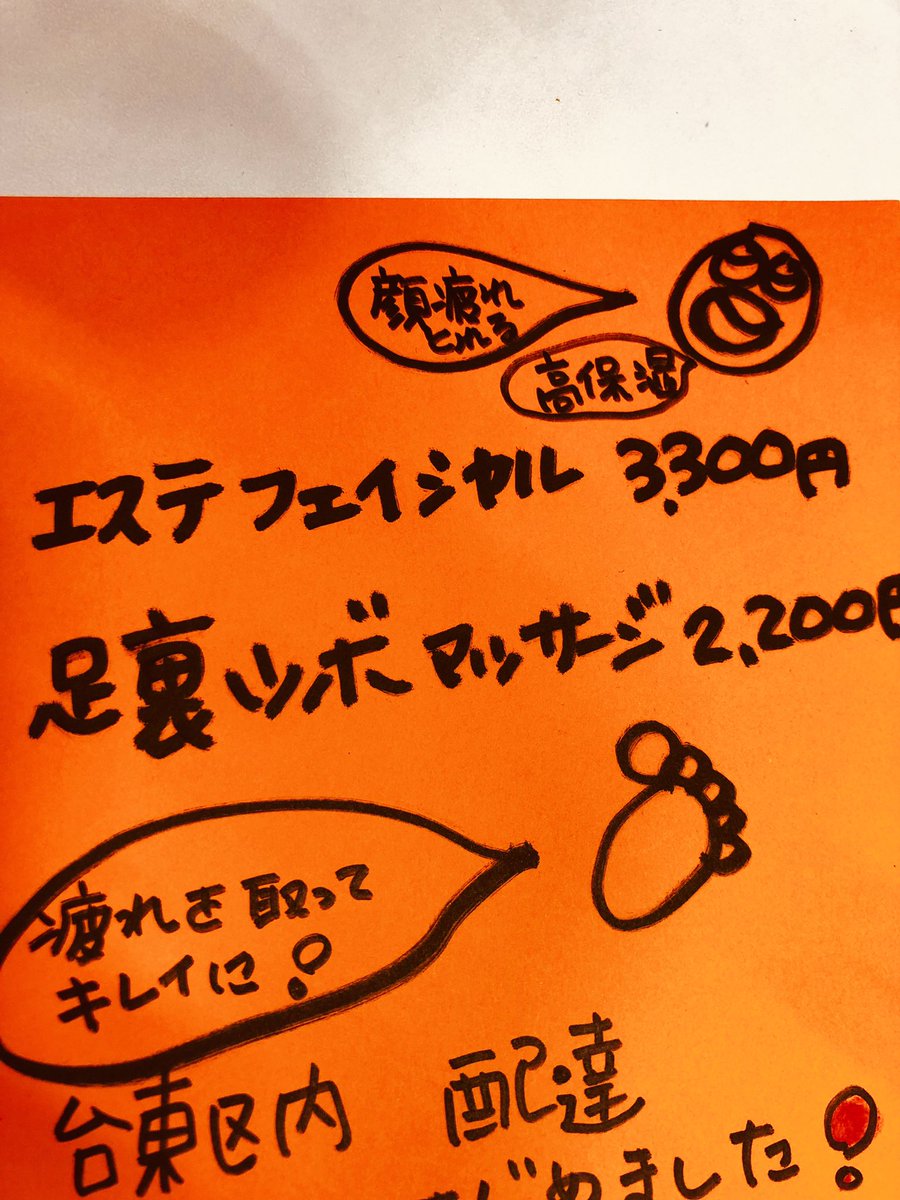 顔疲れ
とれる
高保湿
エステフェイシャル 3,300円
足裏ツボマッサージ 2,200円
疲れを取って
キレイに!
台東区内 配達
はじめました!